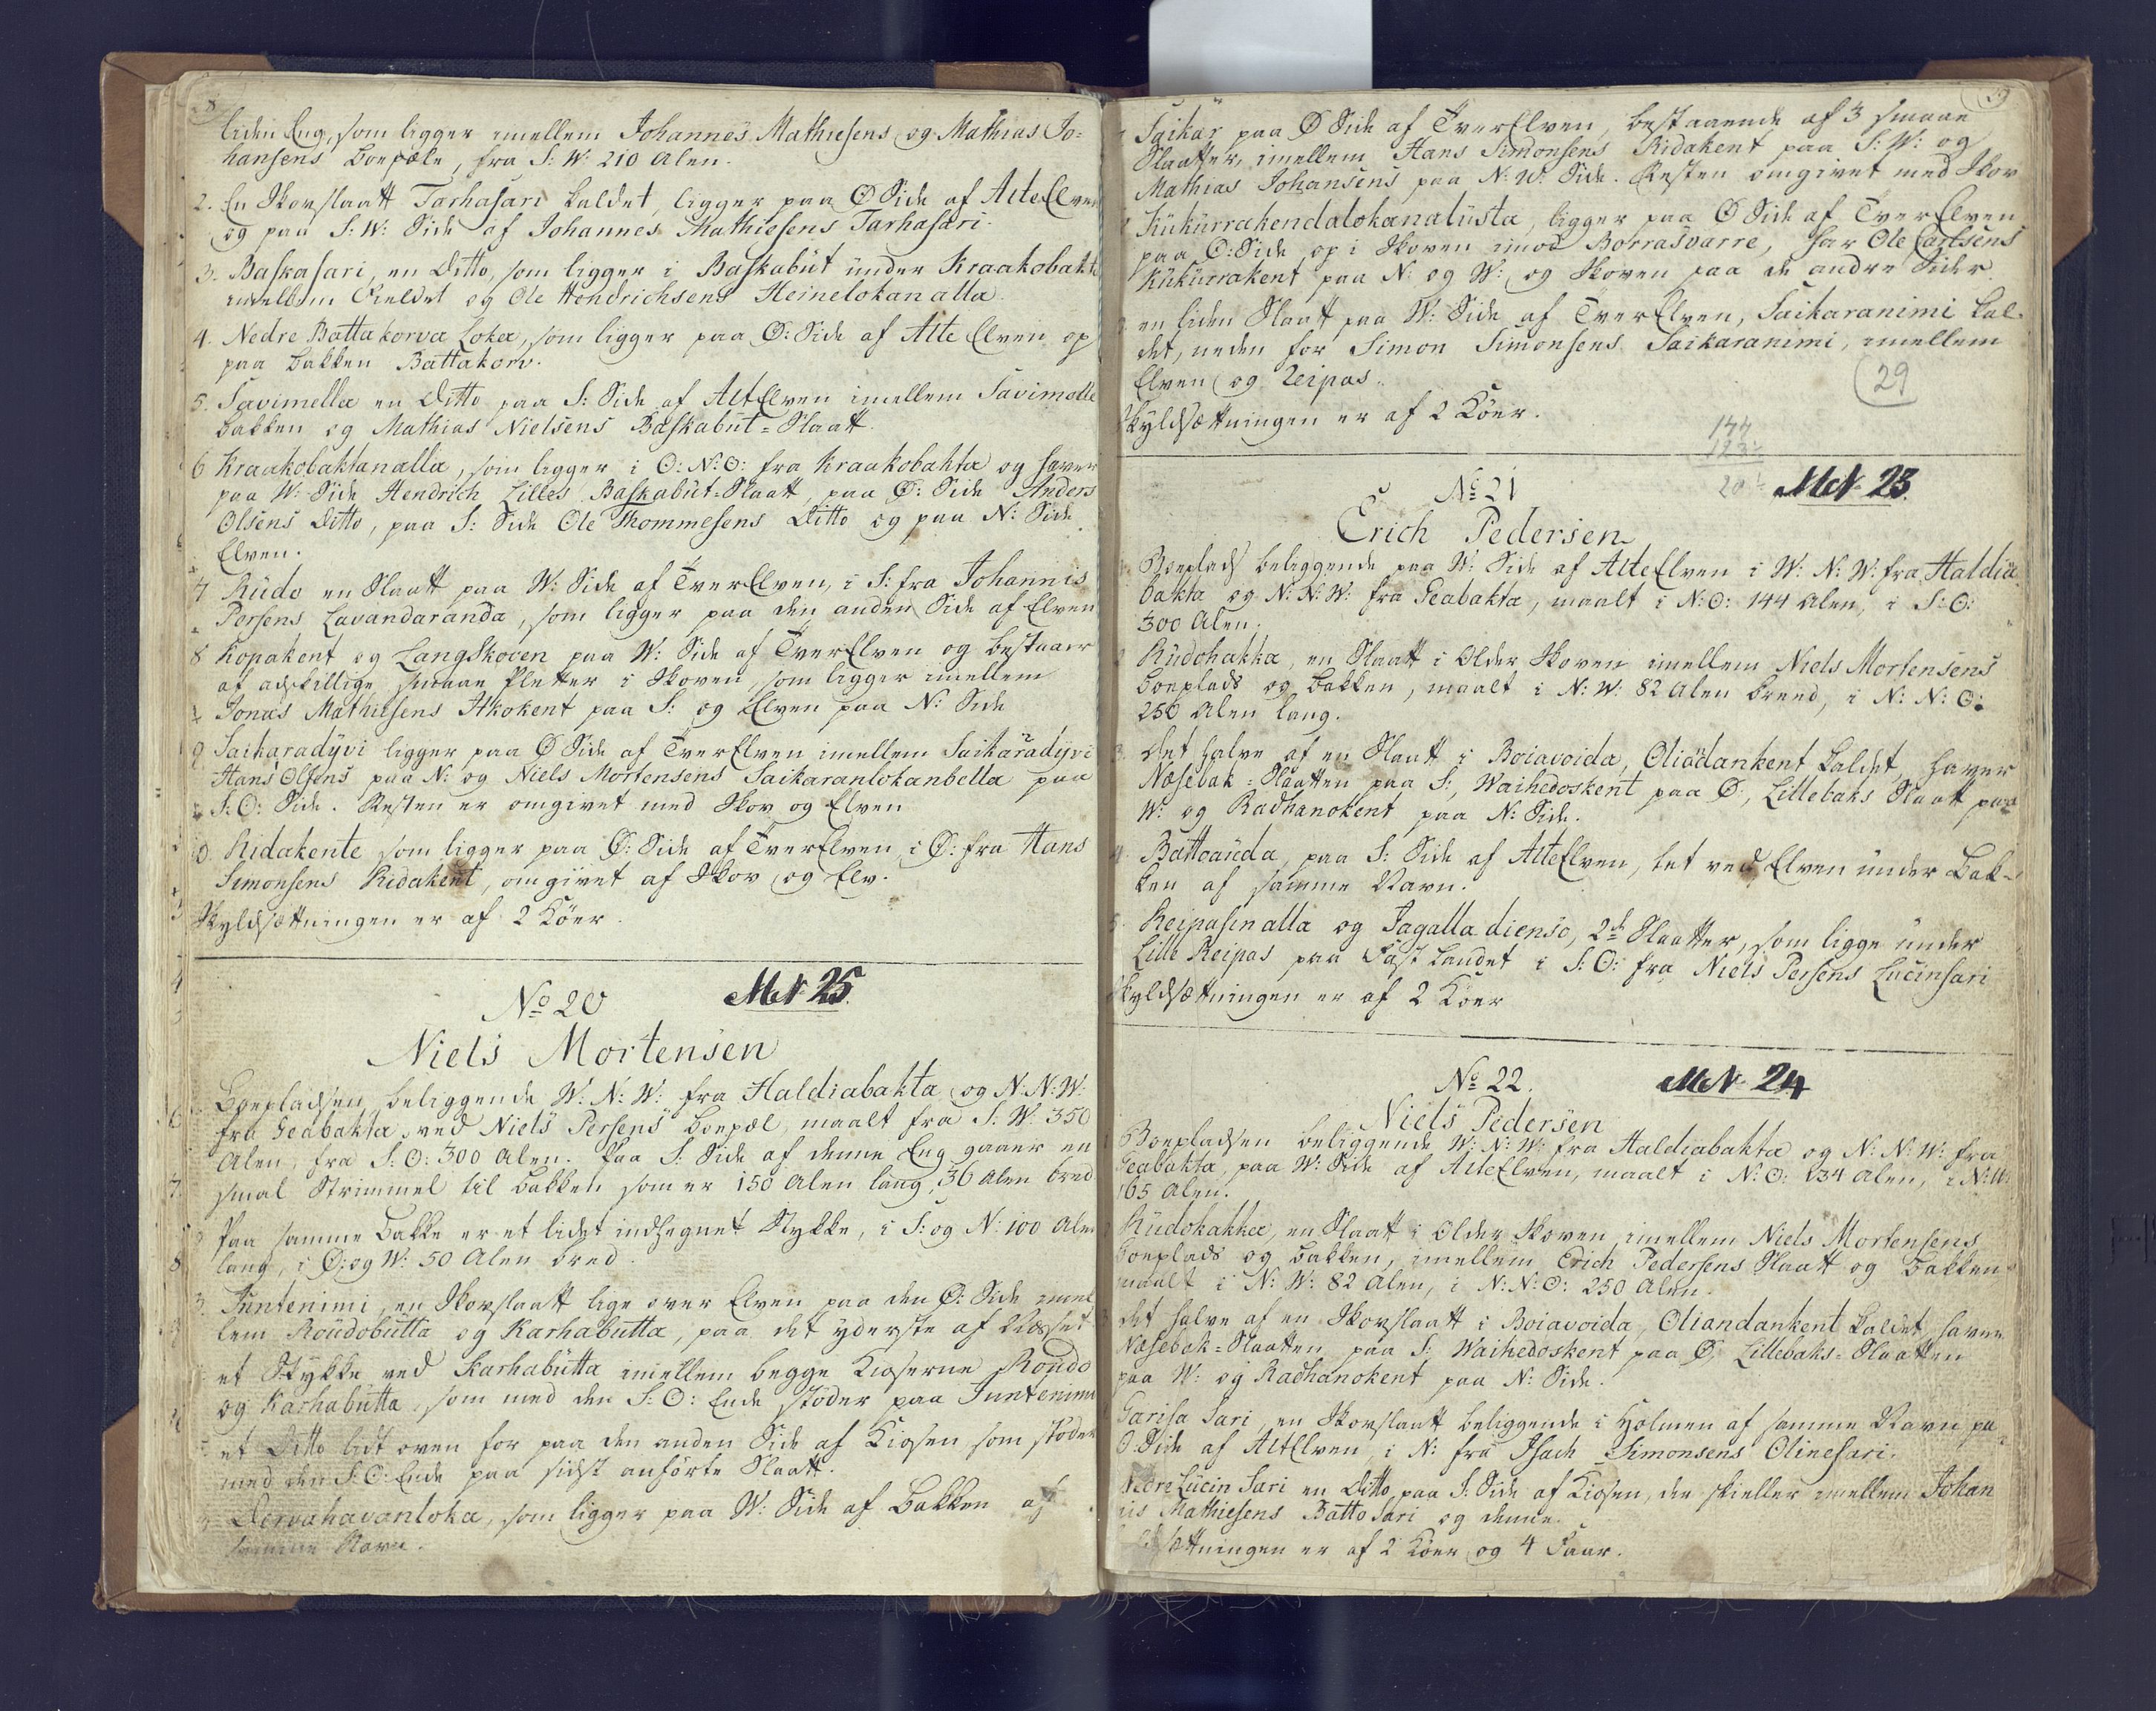 8
liden Eng, som ligger imellem Johannes Mathiesens og Mathias Jo=
hansens Boepæle, fra S: W: 210 Alen.
2. En Skovslaatt Tarhasari kaldet, ligger paa Ø Side af AlteElven
og paa S: W: Side af Johannes Mathiesens Tarhasari.
3. Baskasari, en Ditto, som ligger i Baskabut under Kraakobakta
imellem og Ole Hendrichsens Heinelokanalla.
4. Nedre Battakorva Loka, som ligger paa Ø: Side af Alte Elven op
paa Bakken Battakorv.
5. Savimella en Ditto paa S: Side af AltElven imellem Savimella
Bakken og Mathias Nielsens Baskabut=Slaatt.
6 Kraakobaktanalla, som ligger i O: N: O: fra Kraakobakta og haver
paa W: Side Hendrich Lilles Baskabut=Slaatt, paa Ø: Side Anders
Olsens Ditto, paa S: Side Ole Thommesens Ditto og paa N: Side
Elven.
7 Rudo en Slaatt paa W: Side af TverElven, i S: fra Johannes
Persens Lavandaranda, som ligger paa den anden Side af Elven
8 Kopakent og LangSkoven paa W: Side af TverElven og bestaaer
af adskillige smaae Pletter i Skoven, som ligger imellem
Jonas Mathiesens Itkokent paa S: og Elven paa N: Side
9 Saikaradyvi ligger paa Ø Side af TverElven imellem Saikaradyvi
Hans Olsens paa N: og Niels Mortensens Saikaranlokanbella paa
S: O: Side. Resten er omgivet med Skov og Elven
10. Ridakente som ligger paa Ø: Side af TverElven, i Ø: fra Hans
Simonsens Ridakent, omgivet af Skov og Elv.
Skyldsættningen er af 2 Köer.
No 20 MN 25.
Niels Mortensen
Boepladsen beliggende W: N: W: fra Haldiabakta og N: N: W:
fra Geabakta, ved Niels Persens Boepæl, maalt fra S: W: 350
Alen, fra S: O: 300 Alen. Paa S: Side af denne Eng gaaer en
smal Strimmel til Bakken som er 150 Alen lang, 36 Alen bred
Paa samme Bakke er et lidet indhegnet Stykke, i S: og N: 100 Alen
lang, i Ø: og W: 50 Alen bred.
3. Juntenimi, en Skovslaatt lige over Elven paa den Ø: Side imel
lem Roudobutta og Karhabutta, paa det yderste af Næsset
et Stykke ved Karhabutta imellem begge Kioserne Roudo
og Karhabutta, som med den S: O: Ende stöder paa Juntenimi
et Ditto lidt oven for paa den anden Side af Kiosen som stöder
med den S: O: Ende paa sidst anförte Slaatt.
Dervahavanloka, som ligger paa W: Side af Bakken af
samme Navn.
Saikar paa Ø Side af TverElven, bestaaende af 3 smaae
Slaatter, imellem Hans Simonsens Ridakent paa S: W: og
Mathias Johansens paa N: W: Side. Resten omgivet med Skov
Kukurrakendalokanalusta, ligger paa Ø Side af TverElven
paa Ø: Side op i Skoven imod Borrasvarre, har Ole Carlsens
Kukurrakent paa N: og W: og Skoven paa de andre Sider
en liden Slaatt paa W: Side af TverElven, Saikaranimi kal-
det, neden for Simon Simonsens Saikaranimi, imellem
Elven og Reipas.
29
Skyldsættningen er af 2 Köer.
144
No 21 MN 23.
Erich Pedersen
Boeplads beliggende paa W: Side af AlteElven i W: N: W: fra Haldia
bakta og N: N: W: fra Geabakta, maalt i N: O: 144 Alen, i S: O:
300 Alen.
Rudohakka, en Slaatt i Older Skoven imellem Niels Mortensens
Boeplads og Bakken, maalt i N: W: 82 Alen breed, i N: N: O:
250 Alen lang.
3. Det halve af en Slaatt i Boiavoida, Oliadankent kaldet, haver
Næsebak=Slaatten paa S:, Waihedoskent paa Ø:, Lillebaks Slaatt paa
W: og Radhanokent paa N: Side.
4. Battoauda, paa S: Side af AlteElven, tet ved Elven under Bak-
ken af samme Navn.
5. Reipasinalla og Jagalladienso, 2de Slaatter, som ligge under
Lille Reipas paa Fast Landet i S: O: fra Niels Persens Lucinsari
Skyldsættningen er af 2 Köer
No 22. MN 24
Niels Pedersen
Boepladsen beliggende W: N: W: fra Haldiabakta og N: N: W: fra
Geabakta, paa W: Side af AlteElven, maalt i N: O: 134 Alen, i N: W:
165 Alen.
Rudohakka, en Slaatt i Older Skoven, imellem Niels Mortensens
Boeplads og Bakken, imellem Erich Pedersens Slaatt og Bakken
maalt i N: W: 82 Alen, i N: N: O: 250 Alen.
Det halve af en Skovslaatt i Boiavoida, Oliandankent kaldet, haver
Næsebak=Slaatten paa S: Waihedoskent paa Ø: Lillebaks=Slaatten
paa W: og Radhanokent paa N: Side.
Garisa Sari, en Skovslaatt beliggende i Holmen af samme Navn paa
O: Side af AltElven, i N: fra Isach Simonsens Olinesari.
Nedre Lucin Sari en Ditto, paa S: Side af Kiosen, der skieller imellem Johan
nis Mathiesens Batto Sari og denne.
Skyldsættningen er af 2 Köer og 4 Faar.